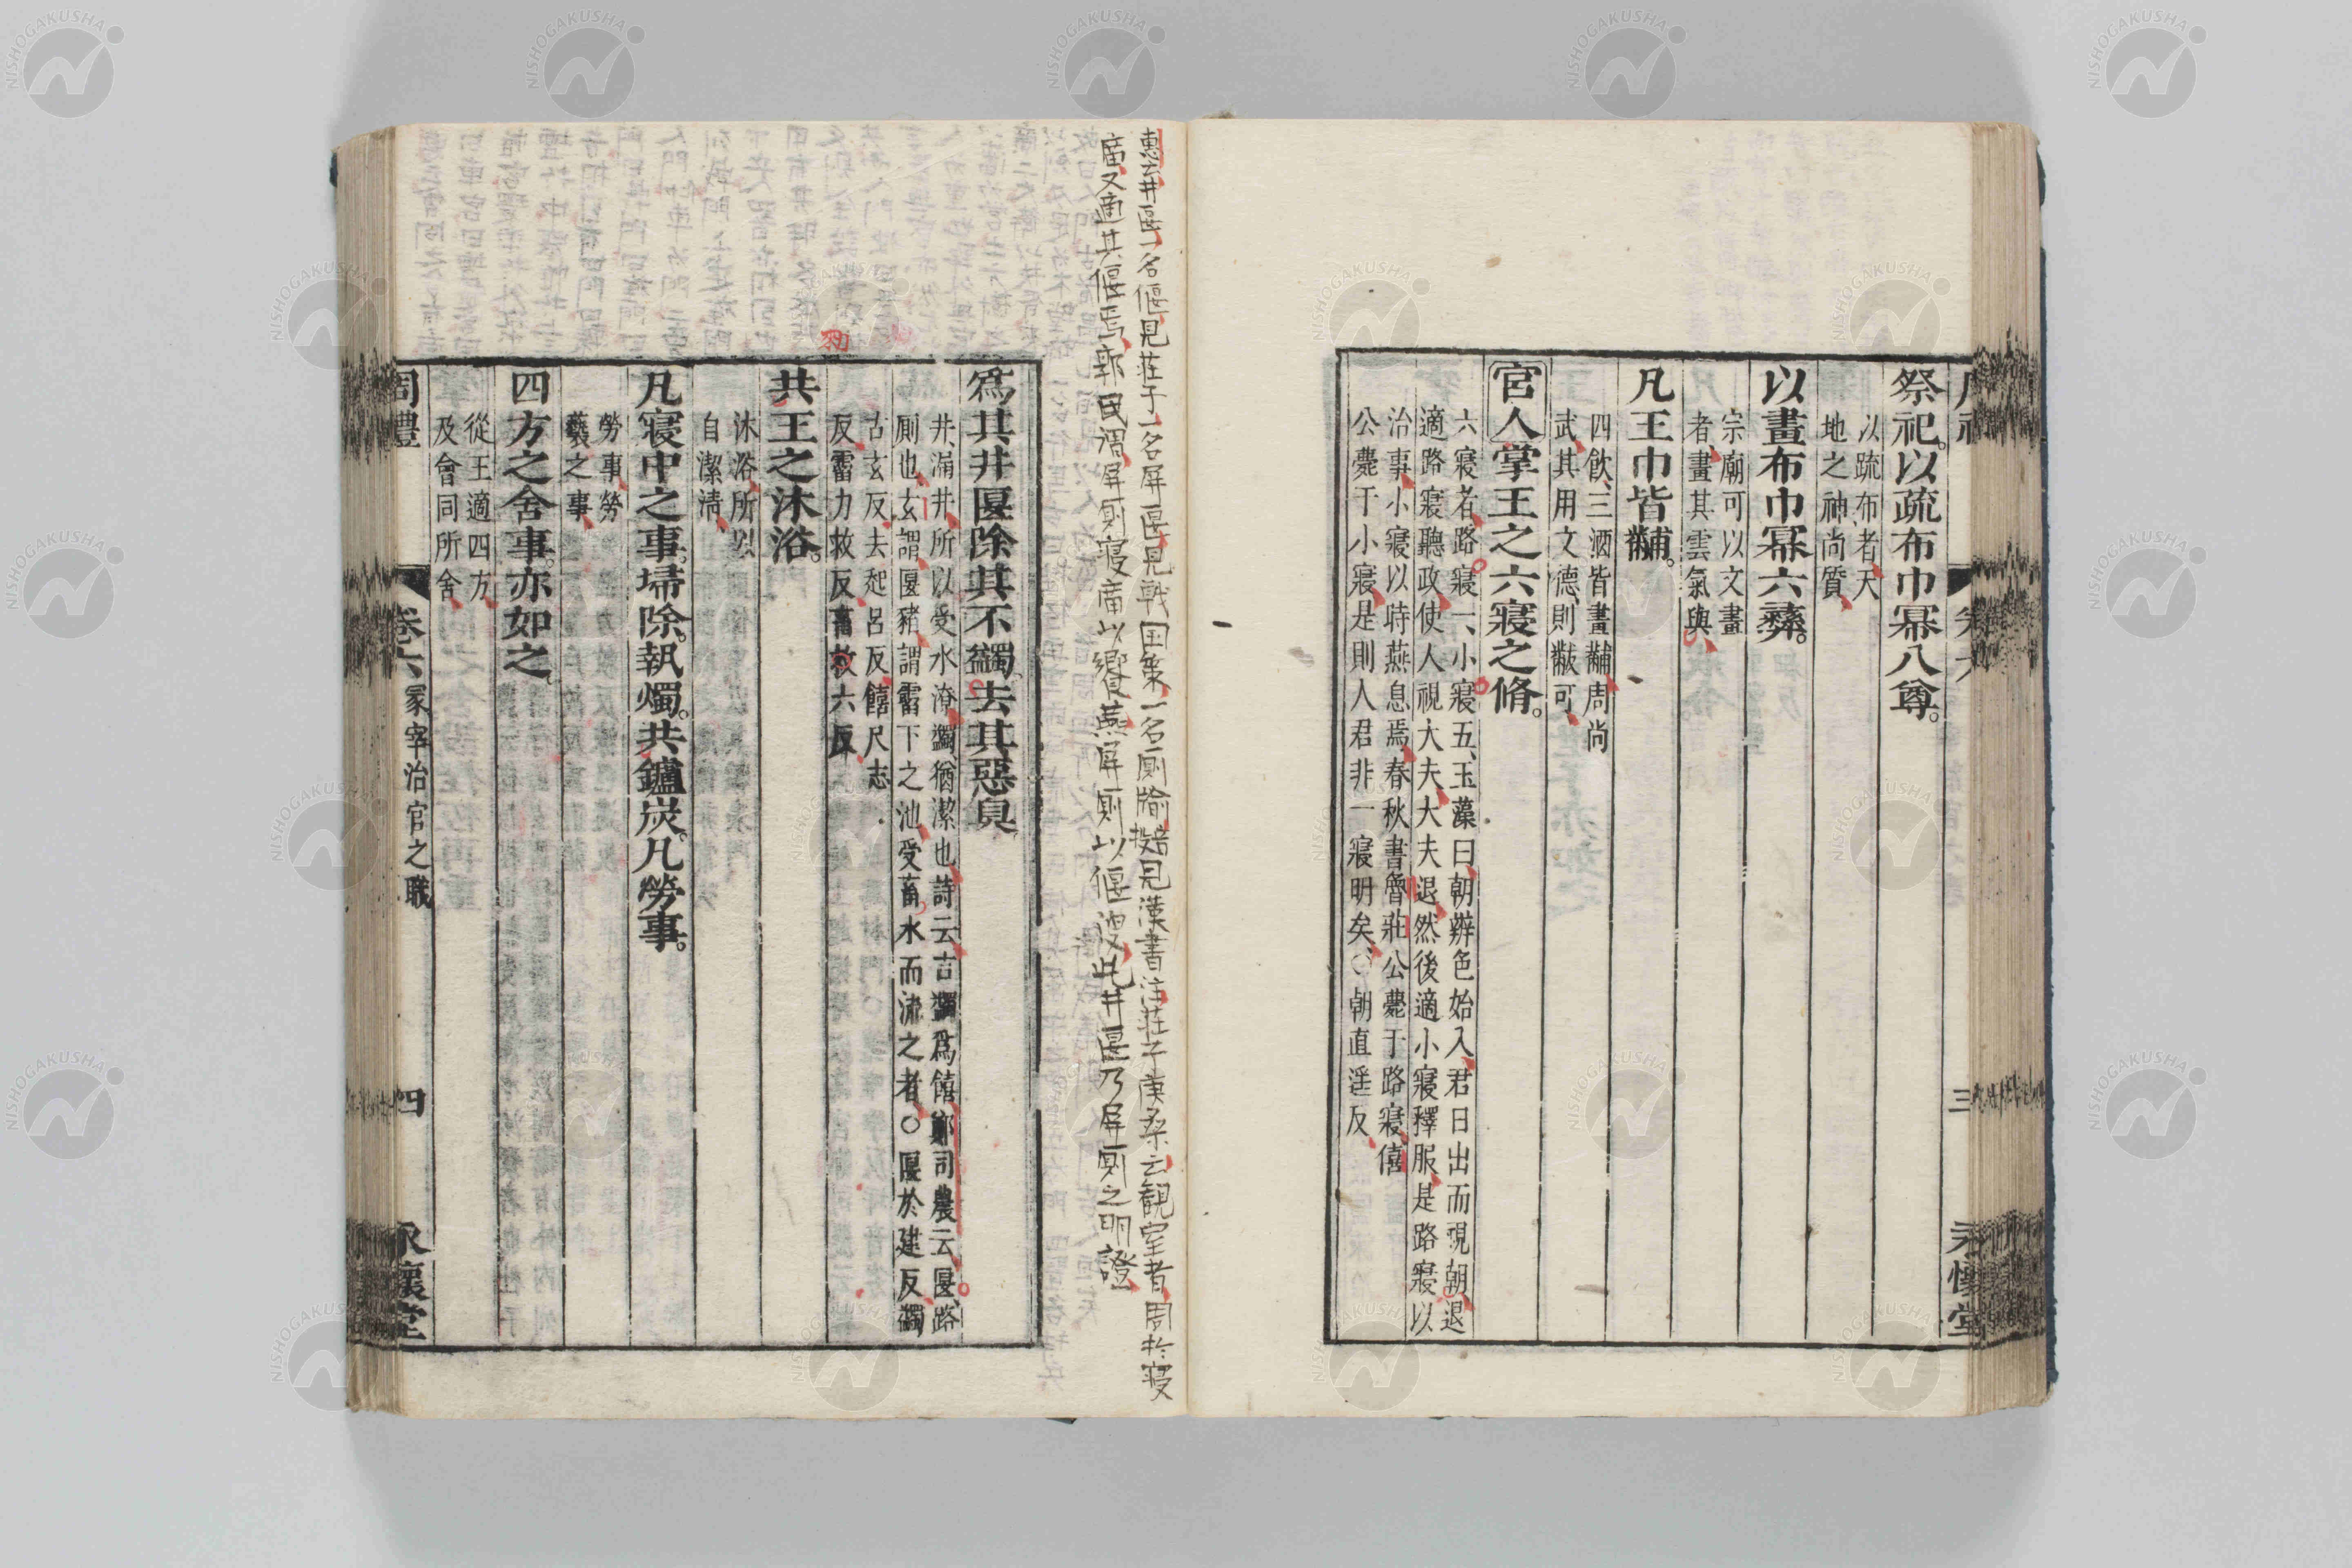 祭祀。以疏布巾冪八尊。
以疏布者天
地之神尚質
以畫布巾冪六彝。
宗廟可以文畫
者畫其雲氣與
凡王巾皆黼。
四飲三酒皆畫黼周尚
武其用文德則黻可
宮人掌王之六寢之脩。
六寢者路寢一小寢五玉藻曰朝辨色始入君日出而視朝退
適路寢聽政使人視大夫大夫退然後適小寢釋服是路寢以
治事小寢以時燕息焉春秋書魯莊公薨于路寢僖
公薨于小寢是則人君非一寢明矣○朝直遥反
惠云井匽一名偃見莊子一名屏匽見戰国策一名厠牏見漢書注莊子庚桑云観室者周於寢
廟又適其偃焉郭氏謂屏厠寢廟以饗燕屏厠以偃溲此井匽乃屏厠之明證
爲其井匽除其不蠲去其惡臭。
井漏井所以受水潦蠲猶潔也詩云吉蠲爲饎鄭司農云匽路
厠也玄謂匽豬謂霤下之池受畜水而流之者○匽於建反蠲
古玄反去起呂反饎尺志
反霤力救反畜敕六反
共王之沐浴。
沐浴所以
自潔淸
凡寢中之事。埽除。執燭。共鑪炭。凡勞事。
勞事勞
褻之事
四方之舍事。亦如之。
從王適四方
及會同所舍
周禮 卷六 冢宰治官之職 四 永懷堂